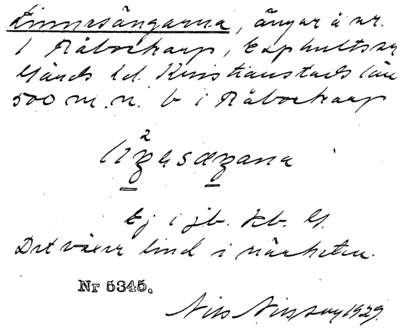 Linnersängarna, ängar å nr.
1 Råbockarp, Esphults sn
Gärds hd. Kristianstads län
500 m. n. b i Råbockarp
Ej i jb. kb. G.
Det växer lind i närheten.
Nr 5345.
Nils Nilsson 1929.